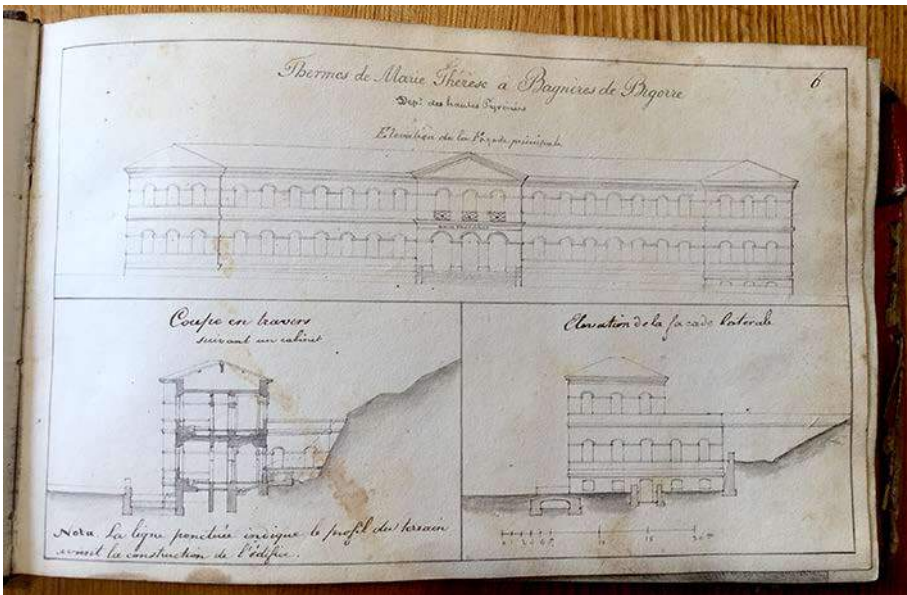 Thermes de Marie Thérèse a Bagnères de Bigorre
6
Dept. des hautes Pyrénées
Elevation de la Façade principale
Coupe en travers
suivant un cabinet
Elevation de la facade laterale
Nota. La ligne ponctuée indique le profil du terrain
avant la construction de l'édifice.